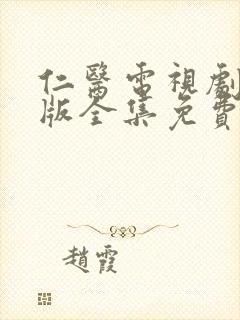 仁醫電視劇
版全集免費
趙霞